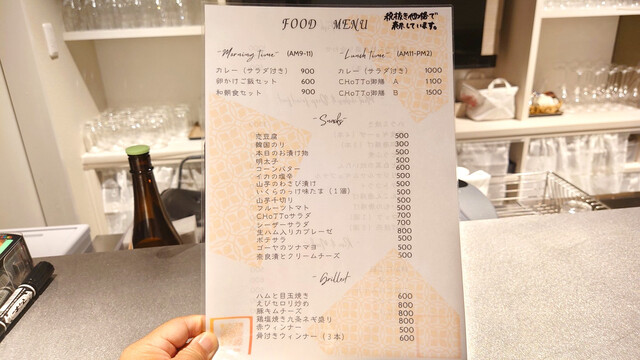 FOOD MENU
税抜き価格で
表示しています。
-Morning time- (AM9-11)
カレー（サラダ付き） 900
卵かけご飯セット 600
和朝食セット 900
-Lunch time- (AM11-PM2)
カレー（サラダ付き） 1000
CHoTTo御膳 A 1100
CHoTTo御膳 B 1500
-Snacks-
恋豆腐 500
韓国のり 300
本日のお漬け物 500
明太子 500
コーンバター 600
イカの塩辛 500
山芋のわさび漬け 500
いくらのっけ味たま（1個） 500
山芋千切り 500
フルーツトマト 500
CHoTToサラダ 700
シーザーサラダ 700
生ハム入りカプレーゼ 800
ポテサラ 500
ゴーヤのツナマヨ 500
奈良漬とクリームチーズ 500
-Grilled-
ハムと目玉焼き 600
えびセロリ炒め 800
豚キムチーズ 800
鶏塩焼き九条ネギ盛り 800
赤ウィンナー 500
骨付きウィンナー（3本） 600